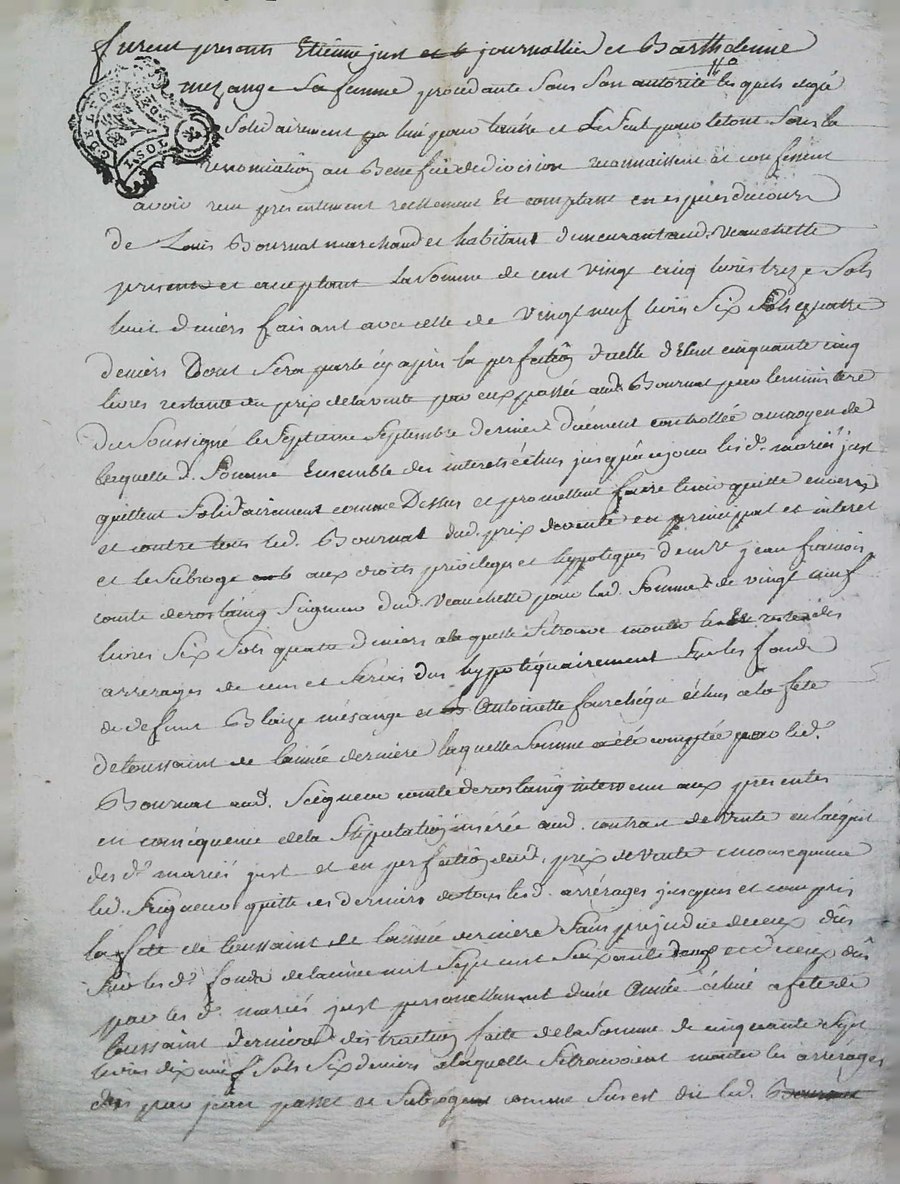 furent presents Etienne just et b journallier et Barthelemie
mezange sa femme procedante sous son autorité lesquels de gré
G. DE LYON
1 SOL
solidairement un pour l'autre et le seul pour le tout sous la
renonciation au Benefice de division reconnaissent et confessent
avoir reçu presentement reellement et comptant en espèces de cours
de Louis Bournat marchand et habitant demeurant aud. Veauchette
présent et acceptant la somme de cent vingt cinq livres treze sols
huit deniers faisant avec celle de vingt neuf livres six sols quatre
deniers Dont sera parlé cy après la perfection d'icelle de cent cinquante cinq
livres restante du prix de la vente par eux passée aud. Bournat par le ministere
Du soussigné le septieme septembre dernier duement controllée au moyen de
laquelle d. somme Ensemble des interets échus jusqu'à ce jour les d. mariés just
quittent solidairement comme Dessus et promettent faire tenir quitte envers
et contre tous led. Bournat dud. prix de vente en principal et interet
et le subroge b aux droits privileges et hypoteques de mre jean françois
comte de rostaing Seigneur dud. Veauchette pour lad. somme de vingt neuf
livres six sols quatre deniers a la quelle se trouve monter le reste des
arrérages de cens et servis dus hypotéquairement sur les fonds
de defunt Blaize mésange et B Antoinette fourchégu échus a la fete
de toussaint de l'année derniere laquelle somme a été comptée par led.
Bournat aud. Seigneur comte de rostaing intervenu aux presentes
en consequence de la stipulation inserée aud. contrat de vente en l'acquit
des d. mariés just et en perfection dud. prix de vente en consequence
led. Seigneur quitte ces derniers de tous lesd. arrérages jusques et compris
la fete de toussaint de l'année derniere sans prejudice de ceux dus
sur les d. fonds de l'année mil sept cent soixante douze et de ceux dus
par les d. mariés just personellement d'une année échue a fete de
toussaint derniere distraction faite de la somme de cinquante sept
livres dix neuf sols six deniers a laquelle se trouvoient monter les arrerages
dus par jean passel et subrogeant comme sus est dit led. Bournat